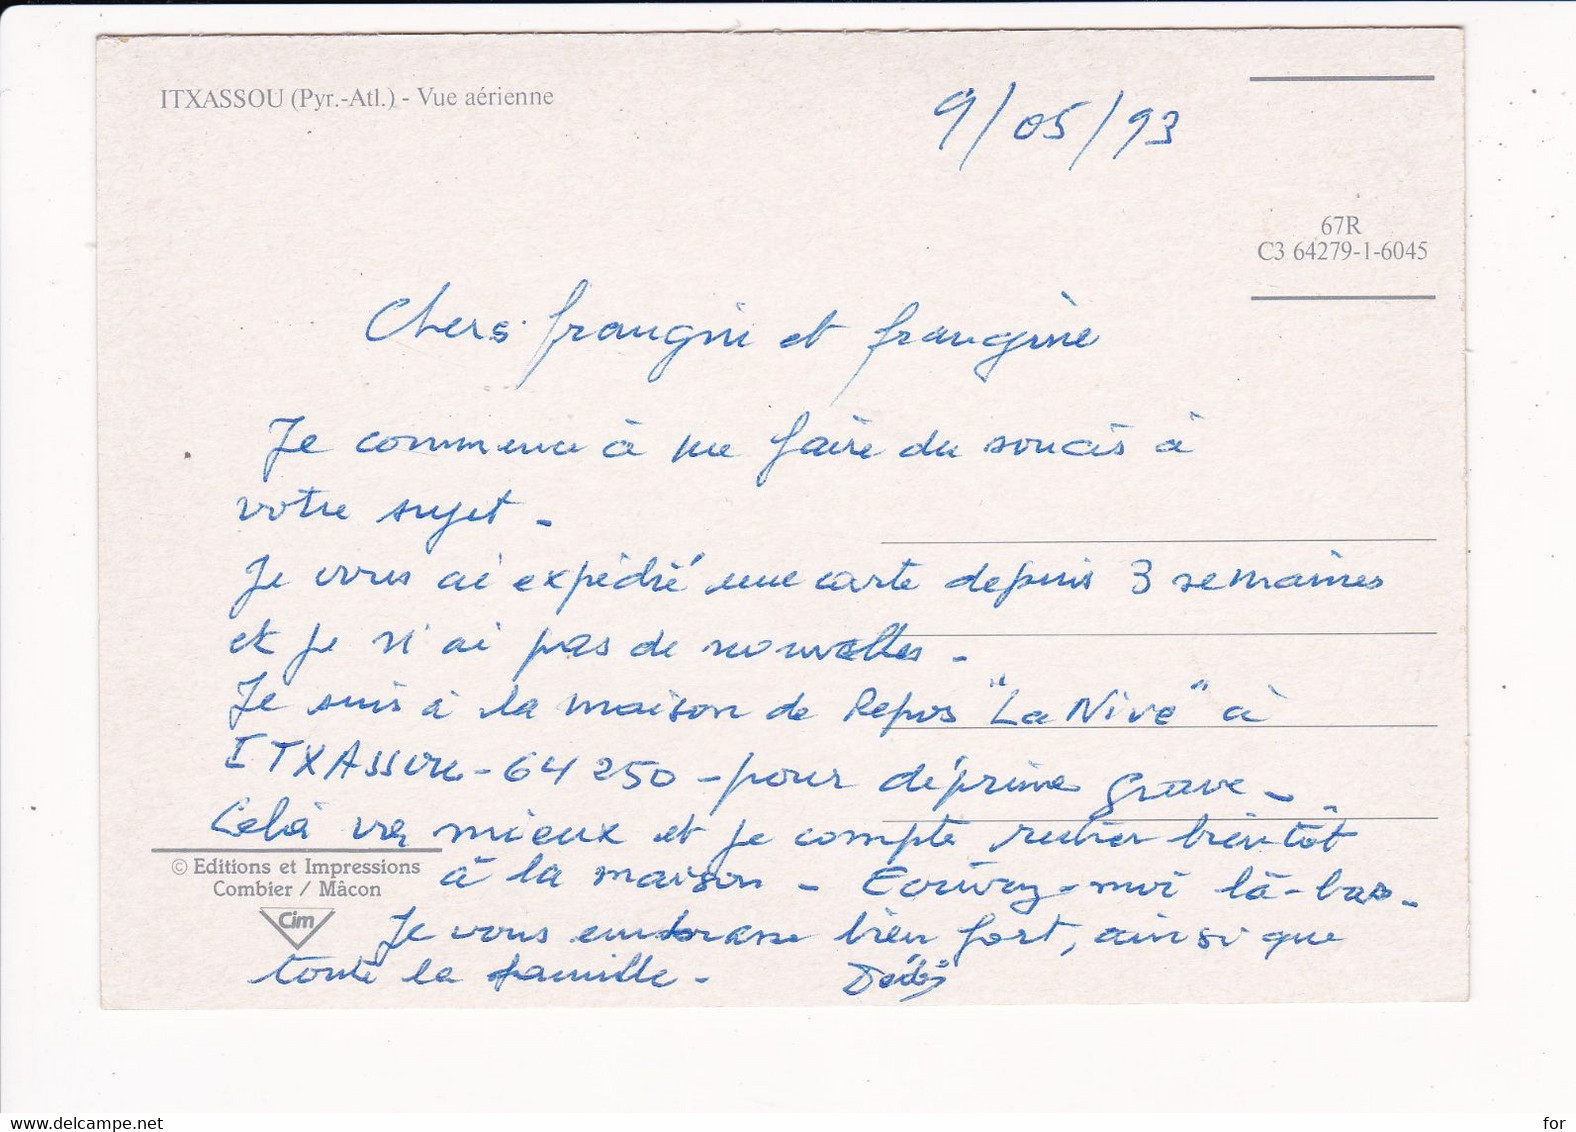 ITXASSOU (Pyr.-Atl.) - Vue aérienne
9/05/93
67R
C3 64279-1-6045
Chers frangin et frangine
Je commence à me faire du soucis à
votre sujet -
Je vous ai expédié une carte depuis 3 semaines
et je n'ai pas de nouvelles -
Je suis à la maison de Repos "La Nive" à
ITXASSOU - 64250 - pour déprime grave -
Celà va mieux et je compte rentrer bientôt
à la maison - Ecrivez-moi là-bas -
Je vous embrasse bien fort, ainsi que
toute la famille -
© Editions et Impressions
Combier / Mâcon
Cim
www.delcampe.net
for